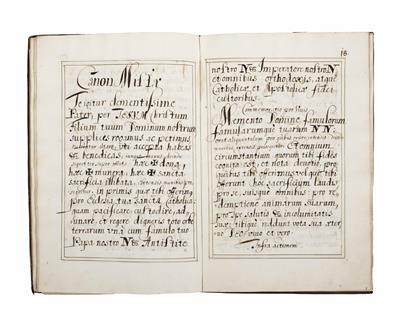 Canon Missæ
Te igitur clementissime
Pater, per JESUM Christum
Filium tuum Dominum nostrum
supplices rogamus ac petimus
uti accepta habeas
et benedicas,
hæc ✠ dona,
hæc ✠ munera, hæc ✠ sancta
sacrificia illibata.
in primis quæ tibi offerim9
pro Ecclesia tua Sancta Catholica
quam pacificare custodire, ad
unare, et regere digneris toto orbe
terrarum vnà cum famulo tuo
Papa nostro N Antistite
18.
nostro N Imperatore nostro N
et omnibus orthodoxis, atque
Catholicæ et Apostolicæ fidei
cultoribus.
Commemoratio pro Vivis
Memento Domine famulorum
famularumque tuarum N N
Et omnium
circumstantium quorum tibi fides
cognita est, et nota devotio, pro
quibus tibi offerimus vel qui tibi
offerunt hoc sacrificium laudis
pro se, suisque omnibus: pro re
demptione animarum suarum,
pro spe salutis et incolumitatis
suæ: tibique reddunt vota sua æter
no Deo vivo et vero.
Infra actionem